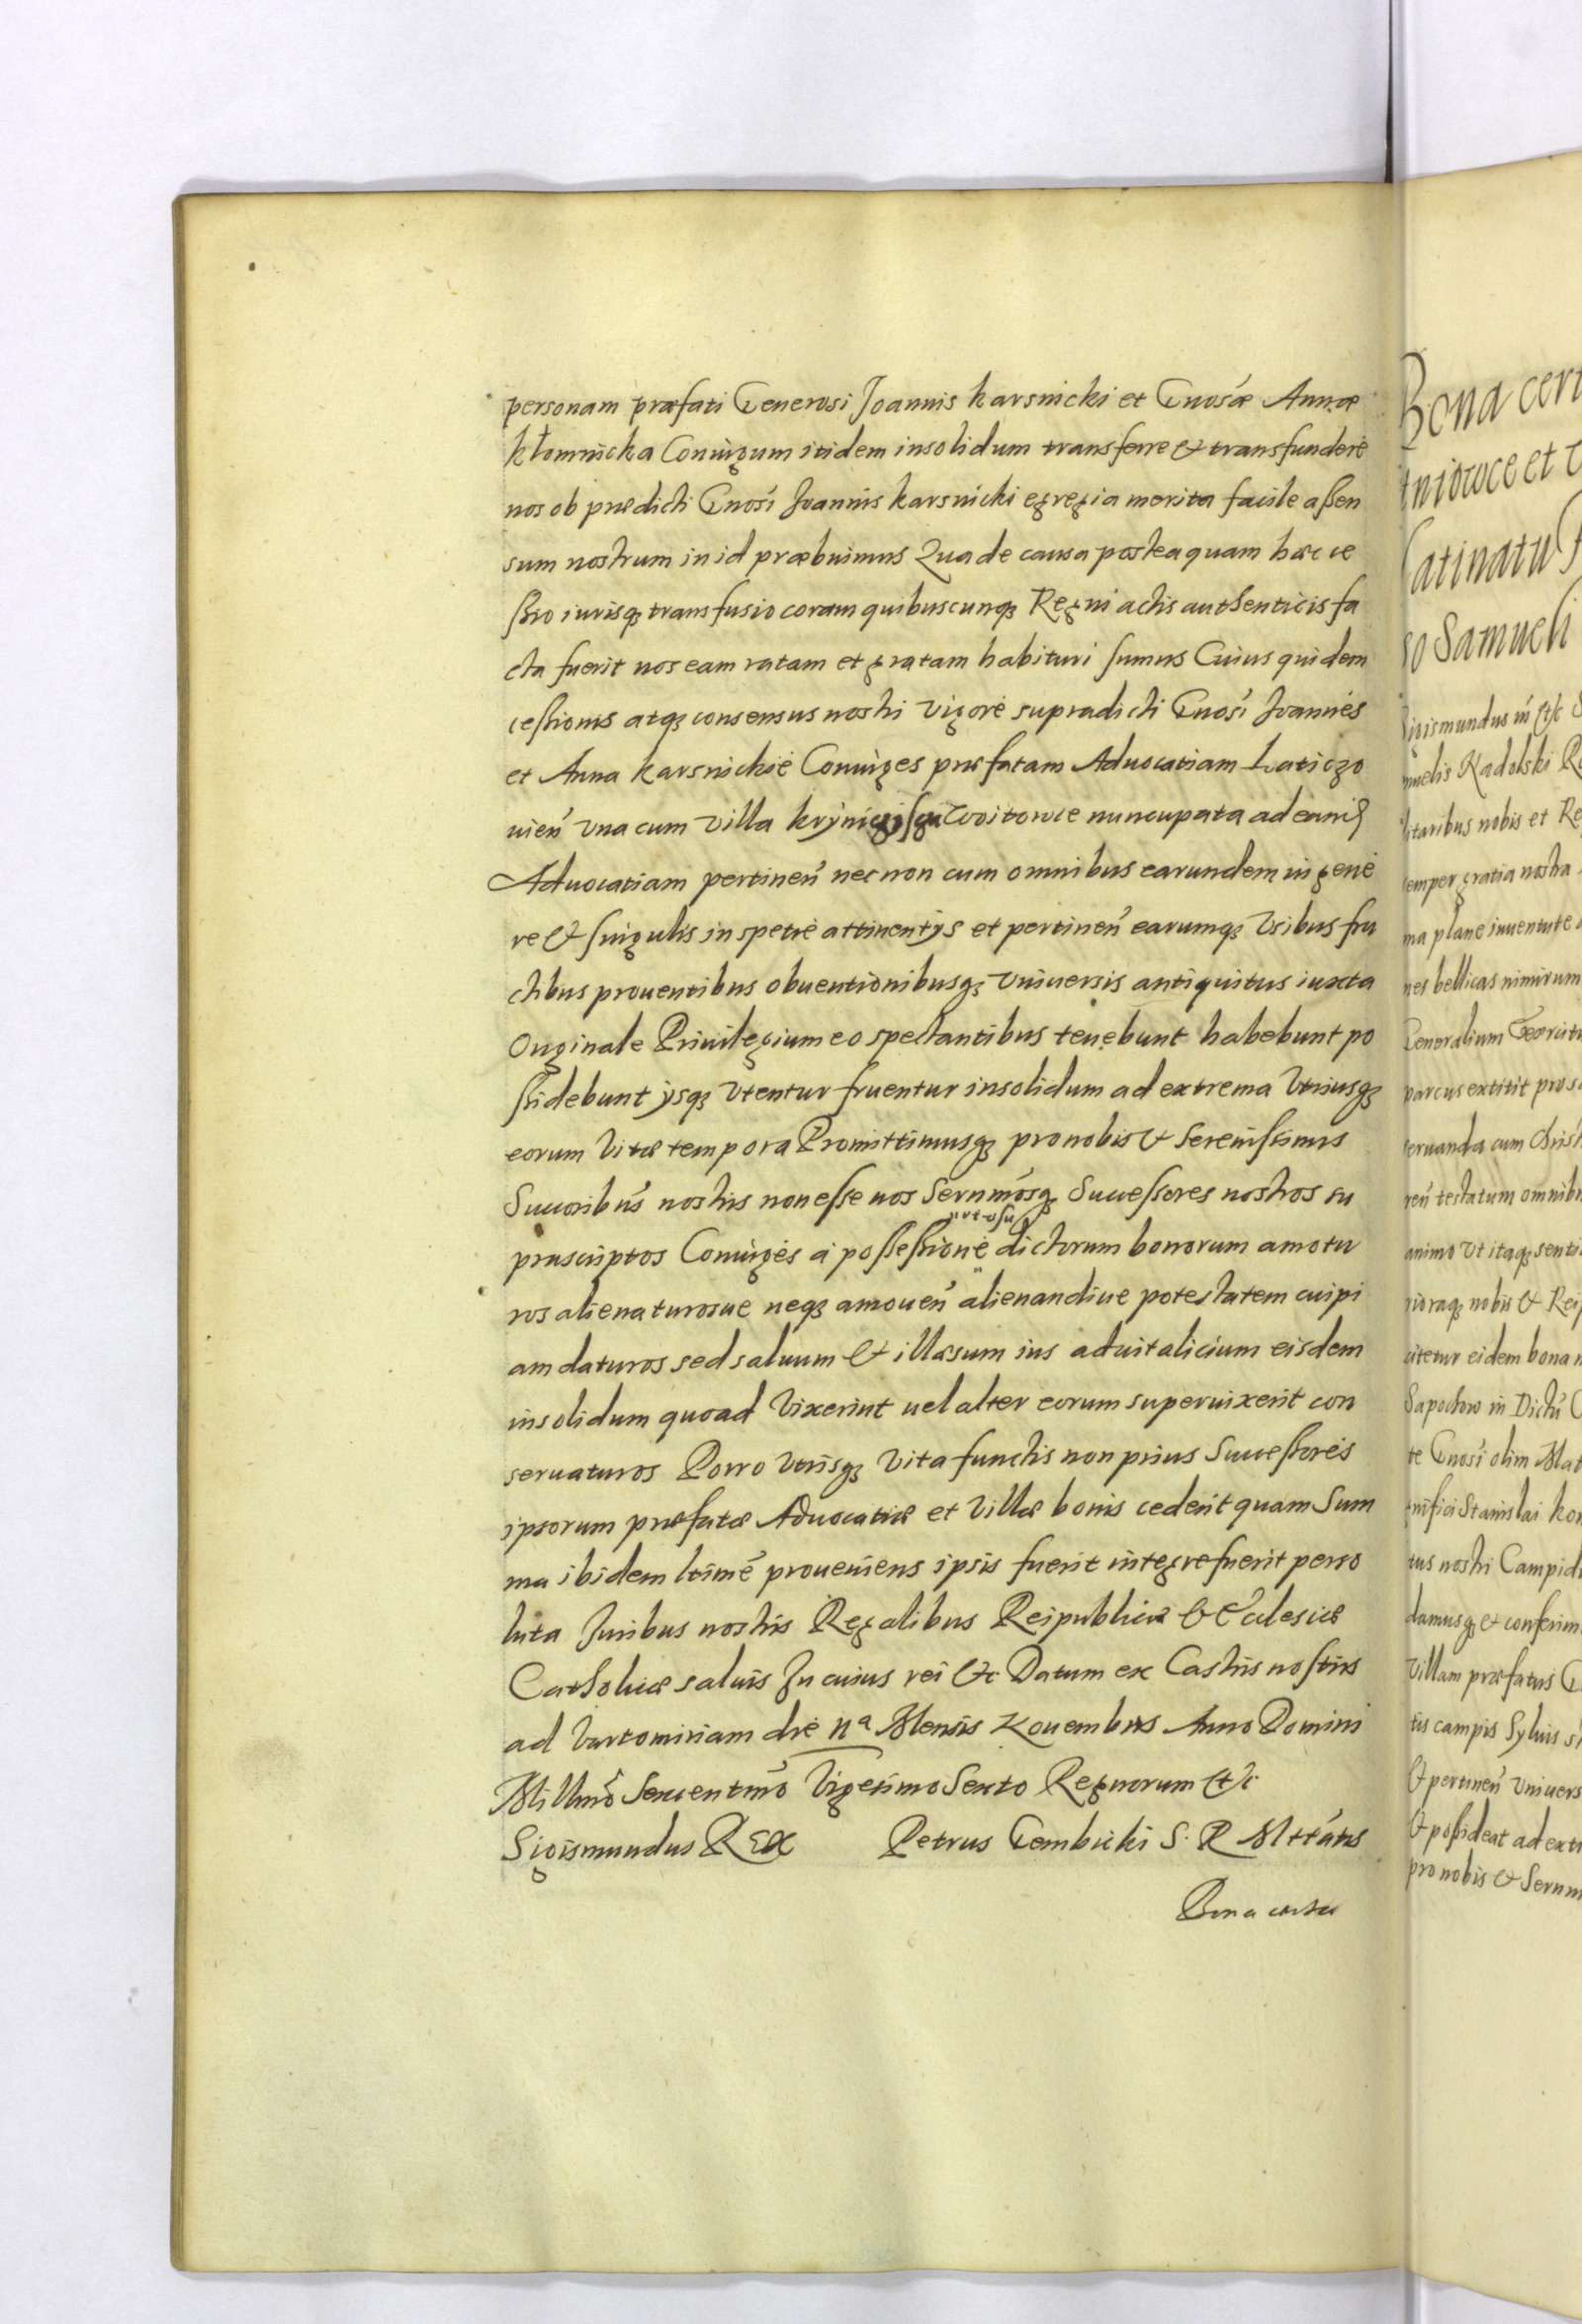 personam præfati Generosi Joannis Karsnicki et Gnosæ Annæ
Kłomnicka Coniugum itidem insolidum transferre & transfundere
nos ob prædicti Gnosi Joannis Karsnicki egregia merita facile assen
sum nostrum in id præbuimus Qua de causa posteaquam hæc ce
ssio iurisq₃ transfusio coram quibuscunq₃ Regni actis authenticis fa
cta fuerit nos eam ratam et gratam habituri sumus Cuius quidem
cessionis atq₃ consensus nostri vigore supradicti Gnosi Joannes
et Anna Karsnickie Coniuges præfatam Aduocatiam Laticzo
uien una cum villa Woitowce nuncupata ad eand
Aduocatiam pertinen nec non cum omnibus earundem in gene
re & singulis in specie attinentijs et pertinen earumq₃ vsibus fru
ctibus prouentibus obuentionibusq₃ vniuersis antiquitus iuxta
Originale Priuilegium eo spectantibus tenebunt habebunt po
ssidebunt ijsq₃ vtentur fruentur insolidum ad extrema vtriusq₃
eorum vitæ tempora Promittimusq₃ pro nobis & Serenissimis
Succoribus nostris non esse nos Sernmosq₃ Successores nostros su
prascriptos Coniuges à possessione dictorum bonorum amotu
ros alienaturosue neq₃ amouen alienandiue potestatem cuipi
am daturos sed saluum & illæsum ius aduitalicium eisdem
insolidum quoad vixerint uel alter eorum superuixerit con
seruaturos Porro vtrisq₃ vita functis non prius Successores
ipsorum præfatæ Aduocatiæ et villæ bonis cedent quam Sum
ma ibidem ltime proueniens ipsis fuerit integre fuerit perso
luta Juribus nostris Regalibus Reipublicæ & Ecclesiæ
Catholicæ saluis In cuius rei &c Datum ex Castris nostris
ad die IIa Mensis Nouembris Anno Domini
Millmo Sexcentmo Vigesimo Sexto Regnorum &c
Sigismundus REX Petrus Gembicki S. R. Mttatis
Bona certa
Bona cert
niowce et
latinatu
so Samueli
Sigismundus in &c
muelis Kadolski
litaribus nobis et Re
semper gratia nostra
ma plane iuuentute
nes bellicas nimirum
Generalium Exercitu
parcus extitit
seruanda cum
ren testatum omnibu
animo vt itaq₃ senti
rioraq₃ nobis & Reip
citetur eidem bona
Sapochow in
te Gnosi olim Mat
gnifici Stanislai Kon
tus nostri Campid
damusq₃ & conferim
villam præfatus G
tis campis syluis
& pertinen vniuers
& possideat ad extr
pro nobis & Sernm